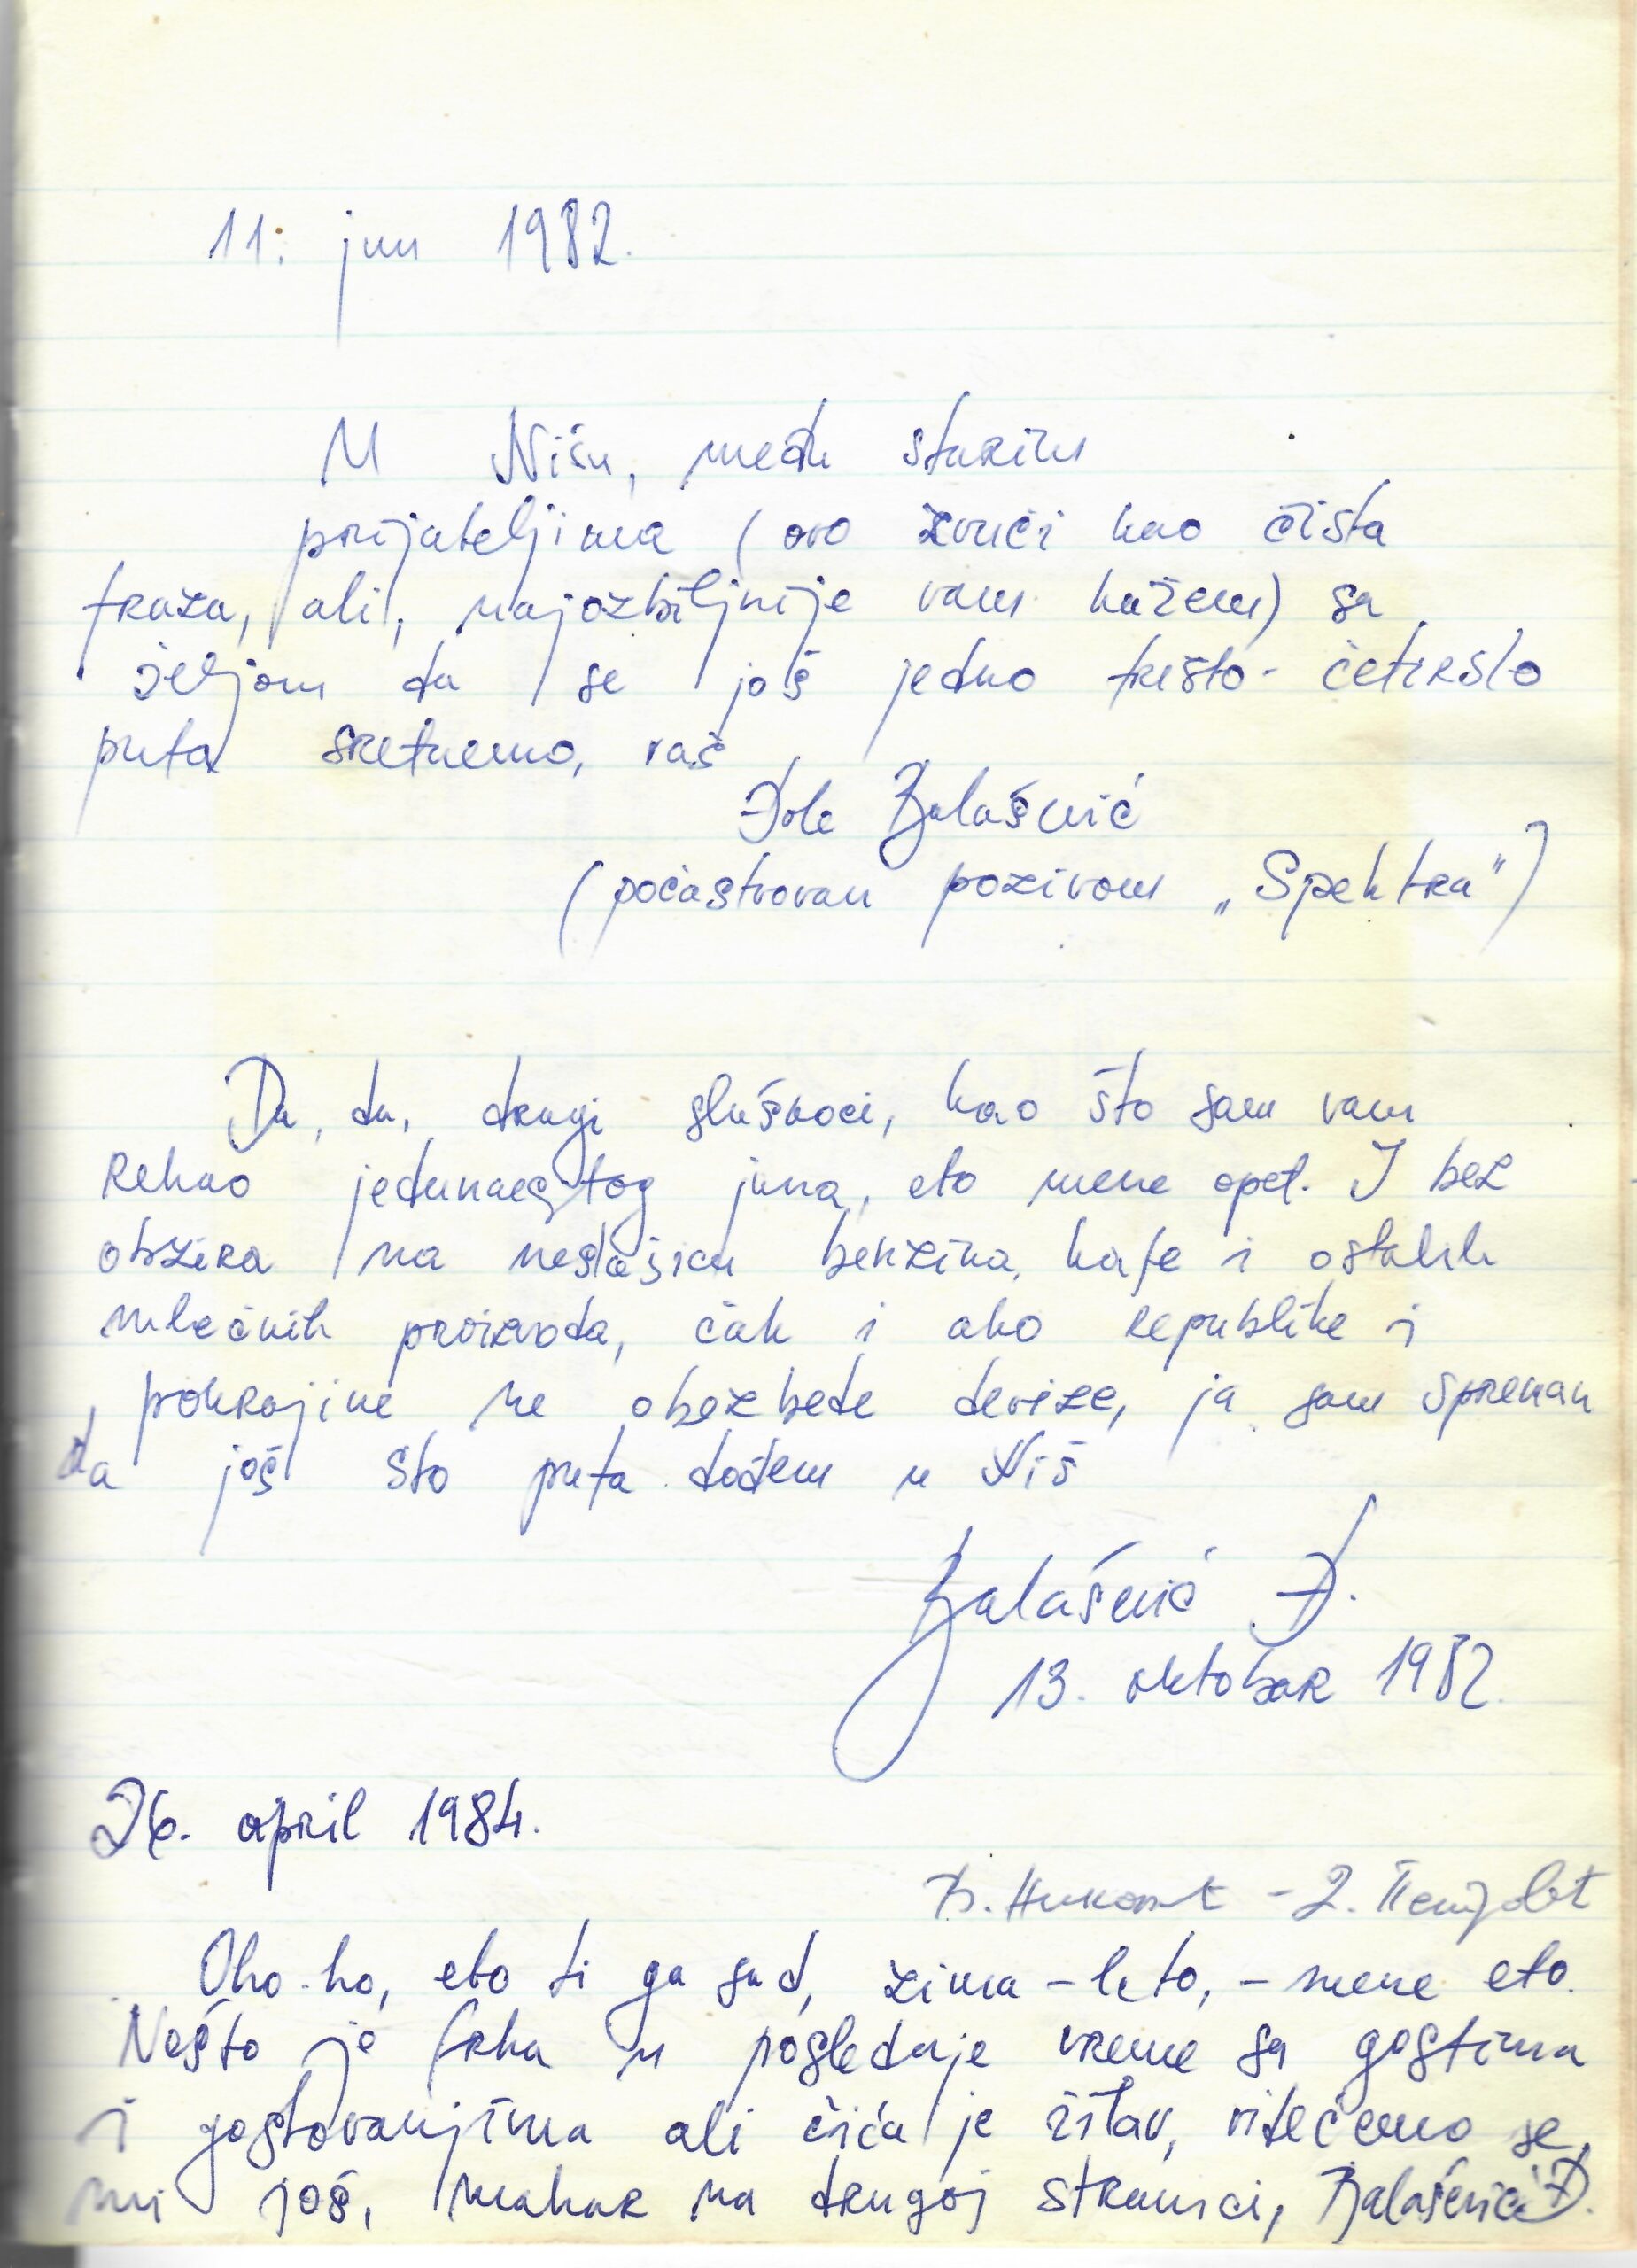 11. jun 1982.
U Nišu, među starim
prijateljima (ovo zvuči kao čista
fraza, ali, najozbiljnije vam kažem) sa
željom da se još jedno tristo- četiristo
puta sretnemo, vaš
Đole Balašević
(počastvovan pozivom „Spektra")
Da, da, dragi slušaoci, kao što sam vam
rekao jedanaestog juna, eto mene opet. I bez
obzira na nestašicu benzina, kafe i ostalih
mlečnih proizvoda, čak i ako republike i
pokrajine ne obezbede devize, ja sam spreman
da još sto puta dođem u Niš
Balašević Đ.
13. oktobar 1982.
26. april 1984.
- 2.
Oho-ho, eto ti ga sad, zima - leto, - mene eto.
Nešto je frka u poslednje vreme sa gostima
i gostovanjima ali čiča je žilav, videćemo se
mi još, makar na drugoj stranici, Balašević Đ.